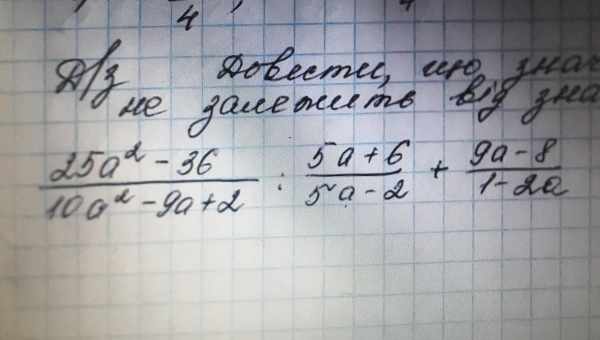 4
Д/з Довести, що знач
не залежить від зна
25a² - 36 / 10a² - 9a + 2 : 5a + 6 / 5a - 2 + 9a - 8 / 1 - 2a